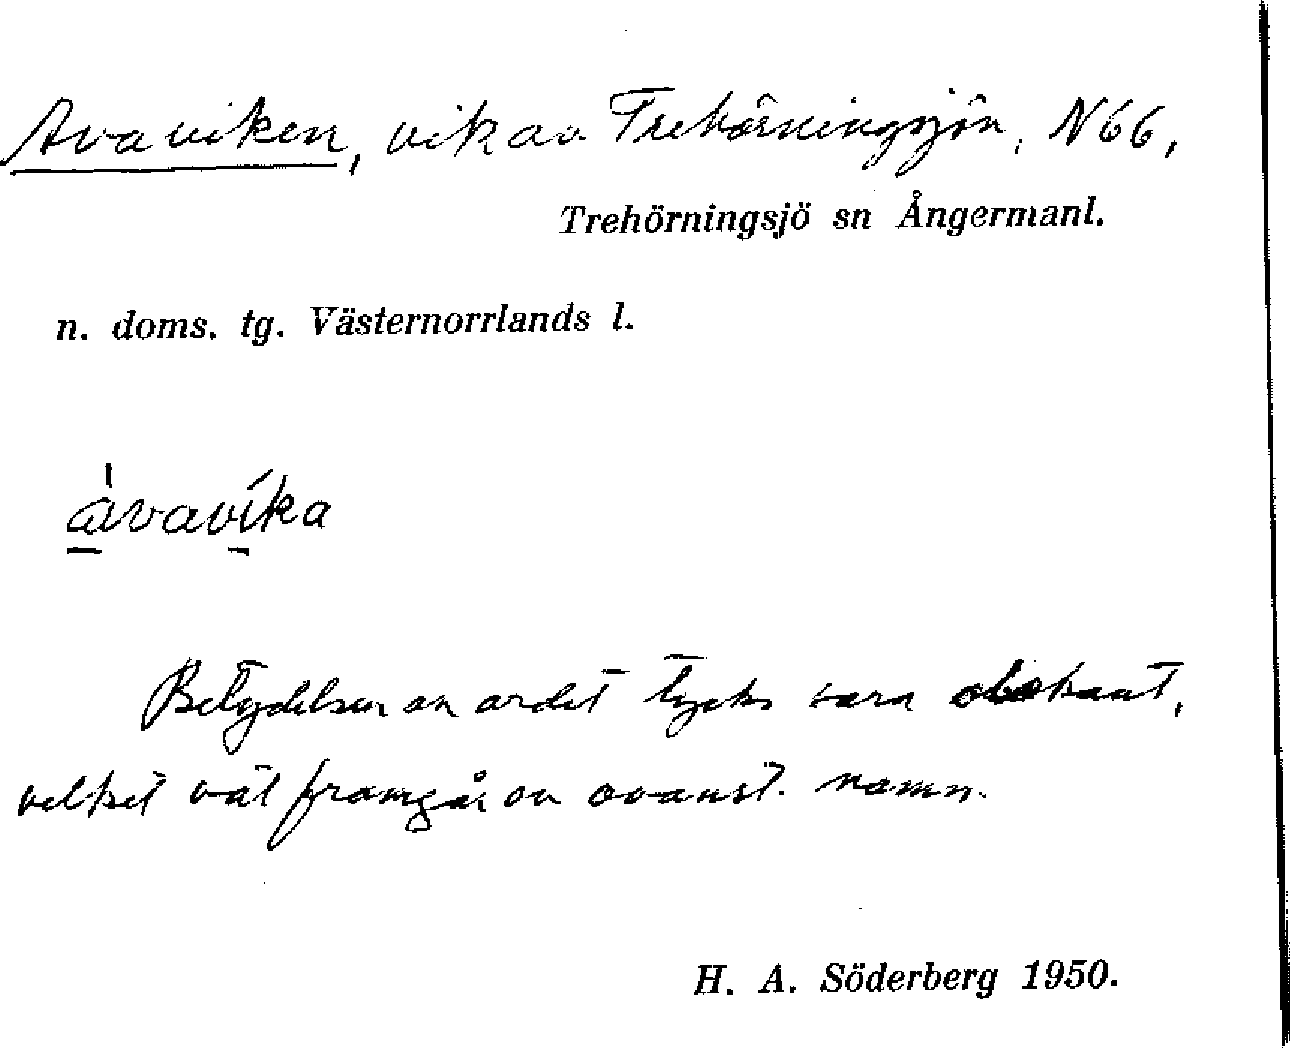 Avaviken, vik av Trehörningsjön, N66,
Trehörningsjö sn Ångermanl.
n. doms. tg. Västernorrlands l.
àvavíka
Betydelsen av ordet tycks vara obekant,
vilket väl framgår av ovanst. namn.
H. A. Söderberg 1950.